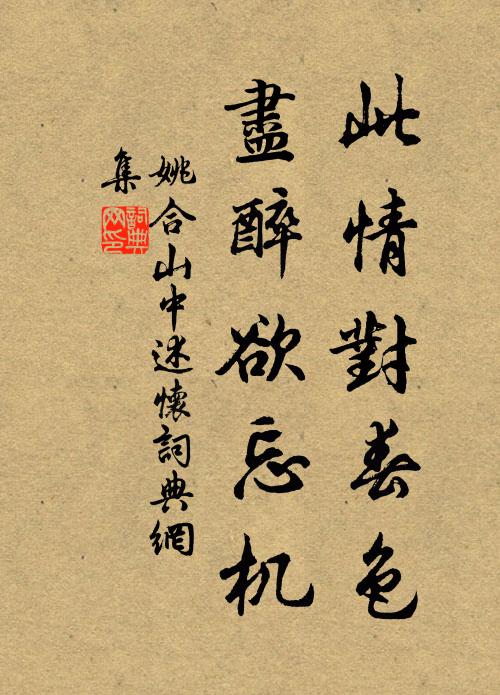 此情對春色
盡醉欲忘机
姚合山中述懷詞典網
集
詞典
网印